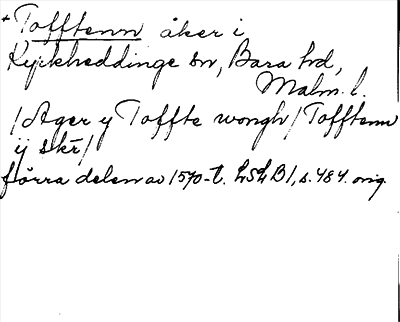 + Tofftenn åker i
Kyrkheddinge sn, Bara hd,
Malm. l.
/Ager y Toffte wongh/Tofftenn
ij skr/
förra delen av 1570-t. LSLB1, s. 484. orig.